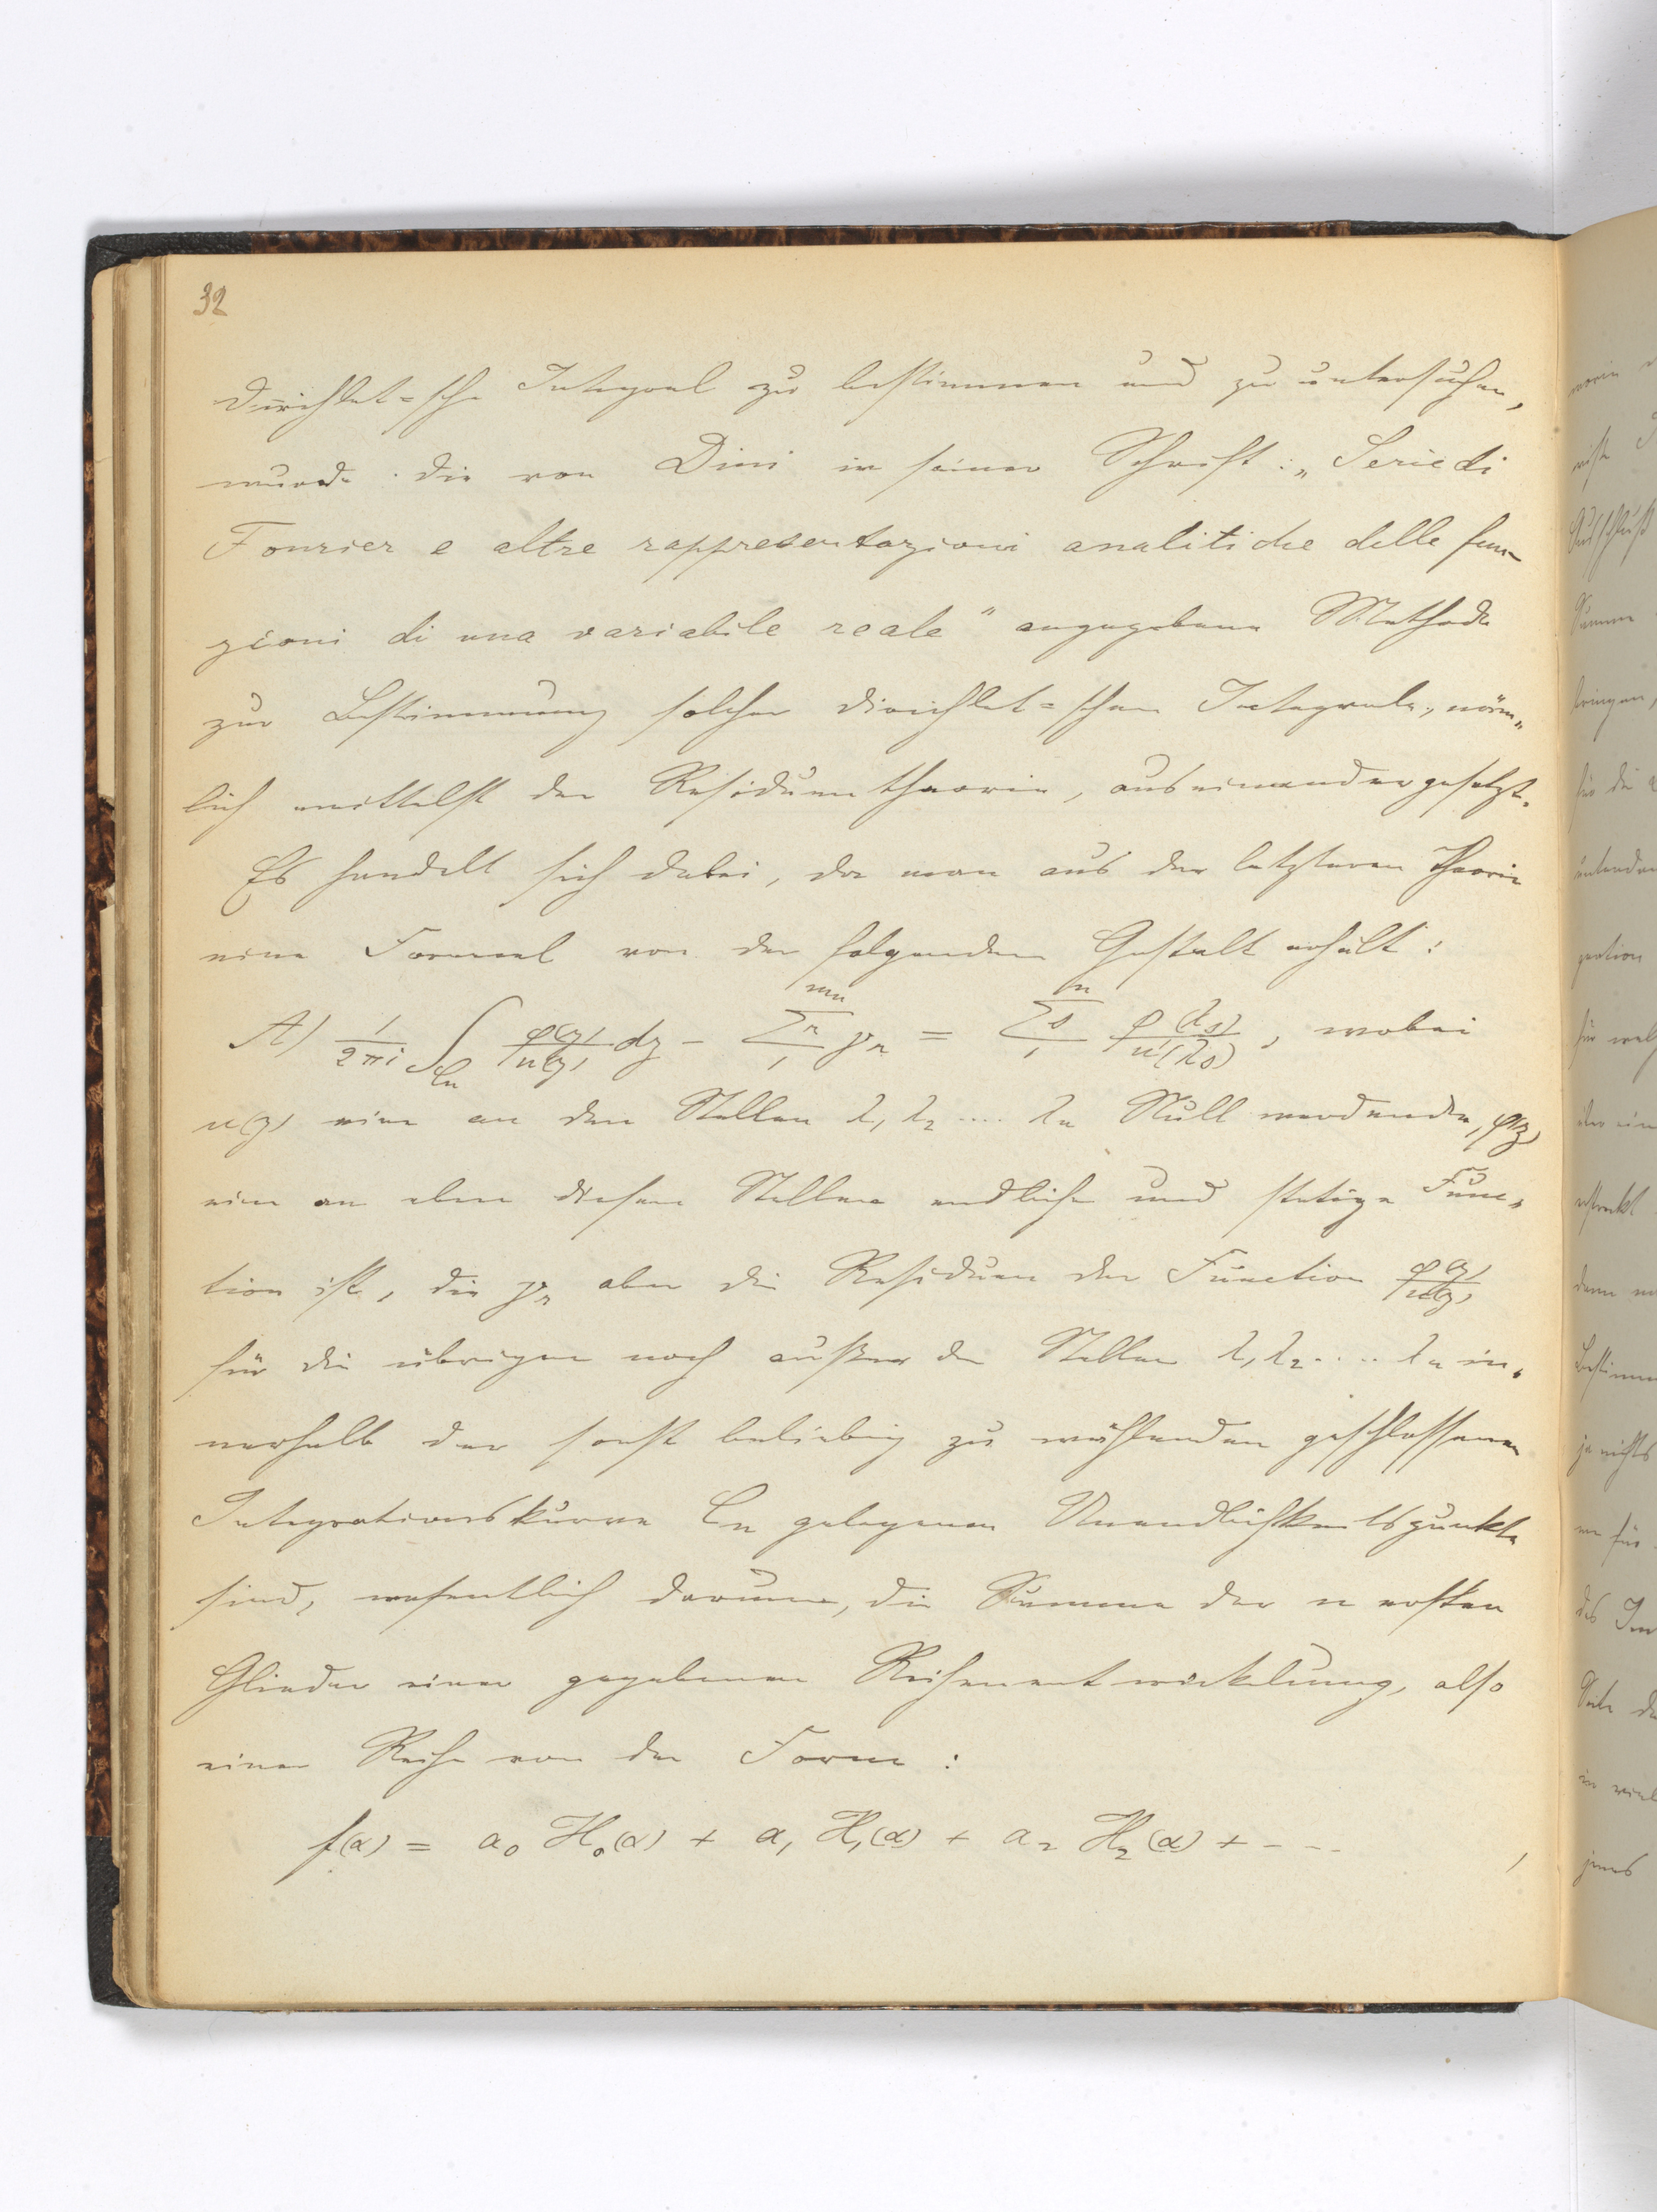 32
Dirichlet=sche Integral zu bestimmen und zu untersuchen,
wurde die von Dini in seiner Schrift: „Serie di
Fourier e altre rappresentazioni analitiche delle fun-
zioni di una variabile reale" angegebene Methode
zur Bestimmung solcher Dirichlet=schen Integrale, näm„
lich mittelst der Residuentheorie, auseinandergesetzt.
Es handelt sich dabei, da man aus der letzteren Theorie
eine Formel von der folgenden Gestalt erhält:
A) 1/2πi ∫_{Cn} φ(z)/u(z) dz − Σ_1^{mn} r γ_r = Σ_1^n s φ(λ_s)/u'(λ_s), wobei
u(z) eine an den Stellen λ_1 λ_2 .... λ_n Null werdende, φ(z)
eine an eben diesen Stellen endliche und stetige Func„
tion ist, die γ_r aber die Residuen der Function φ(z)/u(z)
für die übrigen noch außer den Stellen λ_1 λ_2 .... λ_n in„
nerhalb der sonst beliebig zu wählenden geschlossenen
Integrationskurve Cn gelegenen Unendlichkeitspunkte
sind, wesentlich darum, die Summe der n ersten
Glieder einer gegebenen Reihenentwickelung, also
einer Reihe von der Form:
f(α) = a_0 H_0(α) + a_1 H_1(α) + a_2 H_2(α) + - - - ,